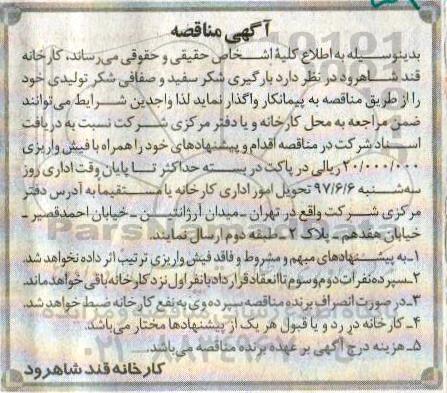 آگهی مناقصه
بدینوسیله به اطلاع کلیه اشخاص حقیقی و حقوقی می‌رساند، کارخانه
قند شاهرود در نظر دارد بارگیری شکر سفید و صفافی شکر تولیدی خود
را از طریق مناقصه به پیمانکار واگذار نماید لذا واجدین شرایط می‌توانند
ضمن مراجعه به محل کارخانه و یا دفتر مرکزی شرکت نسبت به دریافت
اسناد شرکت در مناقصه اقدام و پیشنهادهای خود را همراه با فیش واریزی
۲۰/۰۰۰/۰۰۰ ریالی در پاکت در بسته حداکثر تا پایان وقت اداری روز
سه‌شنبه ۹۷/۶/۶ تحویل امور اداری کارخانه یا مستقیما به آدرس دفتر
مرکزی شرکت واقع در تهران ـ میدان آرژانتین ـ خیابان احمدقصیر ـ
خیابان هفدهم ـ پلاک ۲ ـ طبقه دوم ارسال نمایند.
۱ـ به پیشنهادهای مبهم و مشروط و فاقد فیش واریزی ترتیب اثر داده نخواهد شد.
۲ـ سپرده نفرات دوم و سوم تا انعقاد قرارداد با نفر اول نزد کارخانه باقی خواهد ماند.
۳ـ در صورت انصراف برنده مناقصه سپرده وی به نفع کارخانه ضبط خواهد شد.
۴ـ کارخانه در رد و یا قبول هر یک از پیشنهادها مختار می‌باشد.
۵ـ هزینه درج آگهی بر عهده برنده مناقصه می‌باشد.
کارخانه قند شاهرود